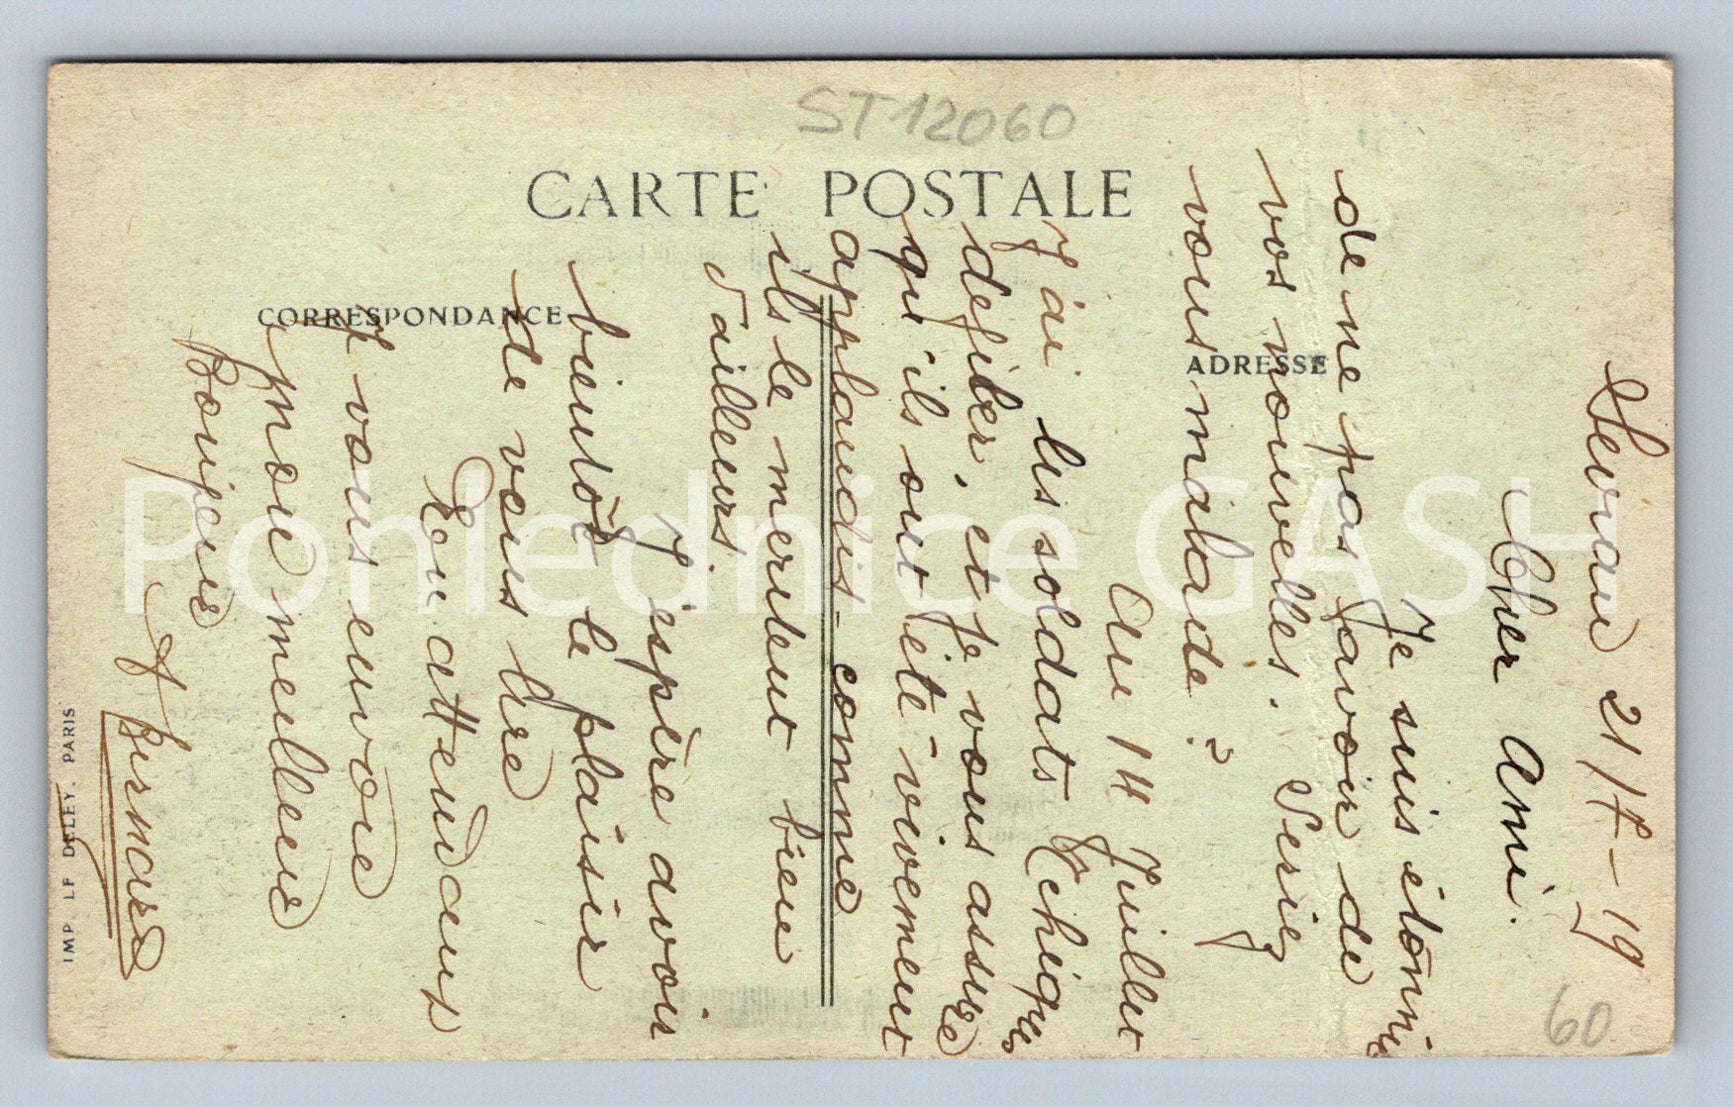 ST12060
CARTE POSTALE
CORRESPONDANCE
ADRESSE
Sevran 21/7-19
Cher Ami.
Je suis étonné
de ne pas savoir de
vos nouvelles. Seriez
vous malade?
Au 14 Juillet
J'ai les soldats Tchèques
defiler, et je vous assure
qu'ils ont été vivement
applaudis - comme
ils le meritent bien
d'ailleurs.
J'espère avoir
bientôt le plaisir
de vous lire
En attendant
Je vous envoie
mon meilleur
Bonjour
IMP. LF DELEY. PARIS
60
Pohlednice GASH